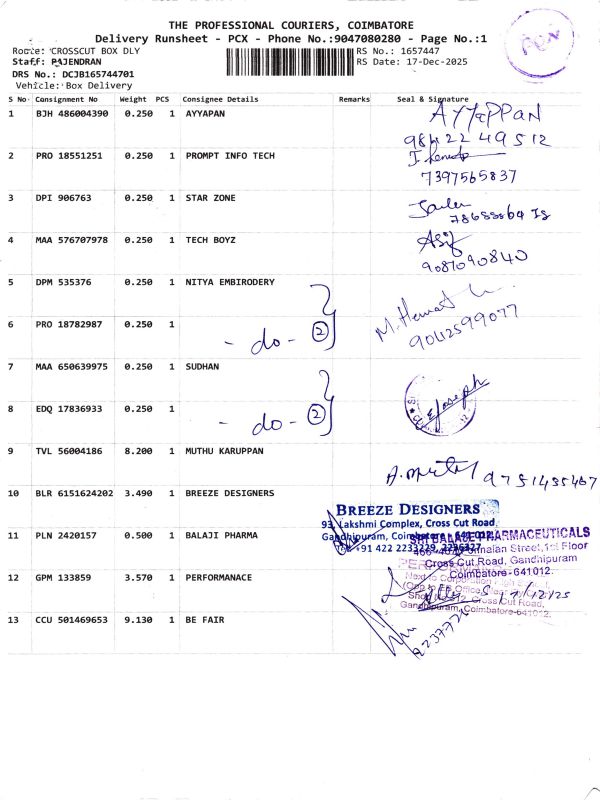 THE PROFESSIONAL COURIERS, COIMBATORE
Delivery Runsheet - PCX - Phone No.:9047080280 - Page No.:1
Route: CROSSCUT BOX DLY
RS No.: 1657447
Staff: RAJENDRAN
RS Date: 17-Dec-2025
DRS No.: DCJB165744701
Vehicle: Box Delivery
S No Consignment No Weight PCS Consignee Details Remarks Seal & Signature
1 BJH 486004390 0.250 1 AYYAPAN AYYAPPAN
9842249512
2 PRO 18551251 0.250 1 PROMPT INFO TECH
7397565837
3 DPI 906763 0.250 1 STAR ZONE
4 MAA 576707978 0.250 1 TECH BOYZ Asif
9087090840
5 DPM 535376 0.250 1 NITYA EMBIRODERY
M. Hemant
9042599077
6 PRO 18782987 0.250 1 - do - 2
7 MAA 650639975 0.250 1 SUDHAN
Joseph
8 EDQ 17836933 0.250 1 - do - 2
9 TVL 56004186 8.200 1 MUTHU KARUPPAN
10 BLR 6151624202 3.490 1 BREEZE DESIGNERS
BREEZE DESIGNERS
93, Lakshmi Complex, Cross Cut Road,
Gandhipuram, Coimbatore - 641 012.
Tel: +91 422 2233229, 2236327
11 PLN 2420157 0.500 1 BALAJI PHARMA
SRI BALAJI PHARMACEUTICALS
Street, 1st Floor
Cross Cut Road, Gandhipuram
Coimbatore-641012.
12 GPM 133859 3.570 1 PERFORMANACE
Cross Cut Road,
Gandhipuram, Coimbatore-641012.
17/12/25
13 CCU 501469653 9.130 1 BE FAIR